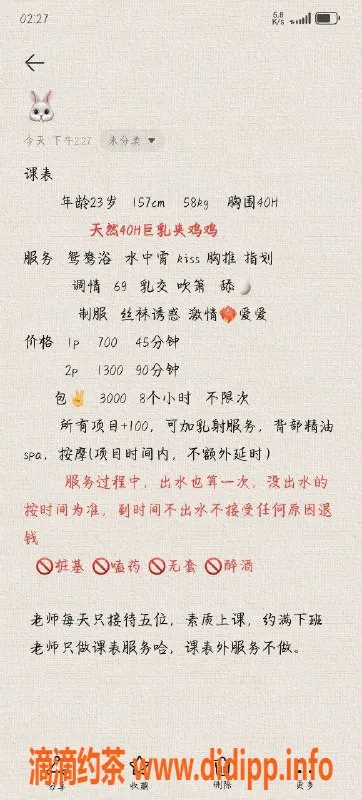 02:27
5.8 K/s
83
今天 下午2:27 未分类
课表
年龄23岁 157cm 58kg 胸围40H
天然40H巨乳夹鸡鸡
服务 鸳鸯浴 水中宵 kiss 胸推 指划
调情 69 乳交 吹箫 舔🌖
制服 丝袜诱惑 激情🏮爱爱
价格 1p 700 45分钟
2p 1300 90分钟
包✌️ 3000 8个小时 不限次
所有项目+100，可加乳射服务，背部精油
spa，按摩(项目时间内，不额外延时)
服务过程中，出水也算一次，没出水的
按时间为准，到时间不出水不接受任何原因退
钱
🚫桩基 🚫嗑药 🚫无套 🚫醉酒
老师每天只接待五位，素质上课，约满下班
老师只做课表服务哈，课表外服务不做。
分享 收藏 删除 更多
滴滴约茶 www.didipp.info